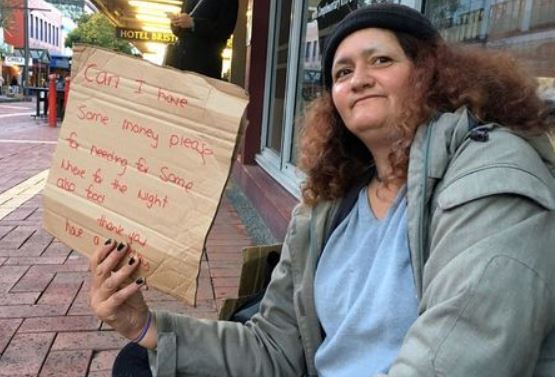 HOTEL BRIST
Can I have
Some money please
for needing for Some
where for the Night
also food
thank you
have a